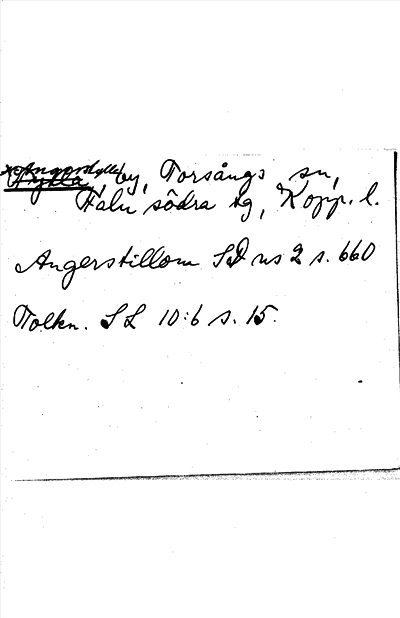 by, Torsångs sn,
Falu södra tg, Kopp. l.
Angerstillom SD ns 2 s. 660
Tolkn. SL 10:6 s. 15.